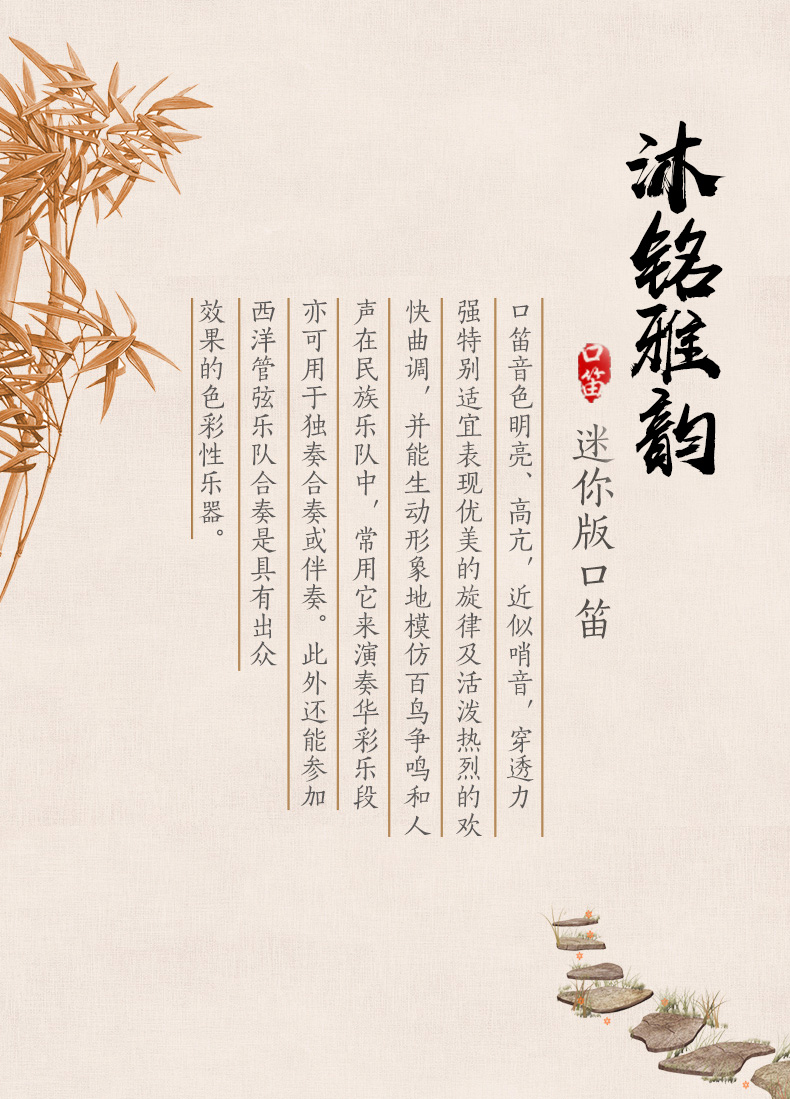 沐铭雅韵
口笛
迷你版口笛
口笛音色明亮、高亢，近似哨音，穿透力
强特别适宜表现优美的旋律及活泼热烈的欢
快曲调，并能生动形象地模仿百鸟争鸣和人
声在民族乐队中，常用它来演奏华彩乐段
亦可用于独奏合奏或伴奏。此外还能参加
西洋管弦乐队合奏是具有出众
效果的色彩性乐器。